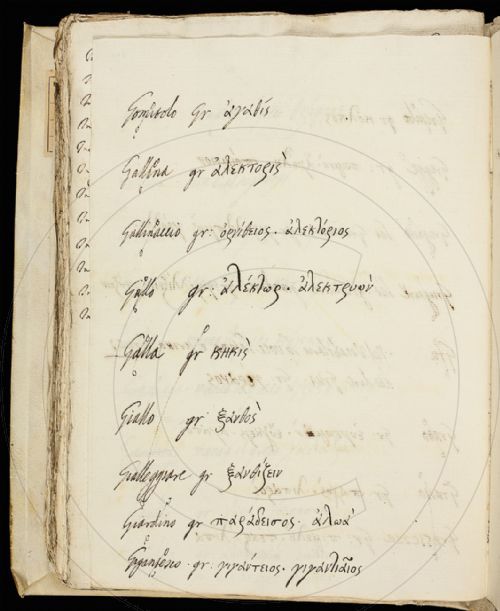 gr ἀγαθίς
Gallina gr ἀλεκτορὶς
Gallinaccio gr: ὀρνίθειος. ἀλεκτόριος
Gallo gr: ἀλέκτωρ. ἀλεκτρυών
Galla gr κηκὶς
Giallo gr ξανθὸς
Gialleggiare gr ξανθίζειν
Giardino gr παράδεισος. ἀλωά
gr: γιγάντειος. γιγαντιαῖος